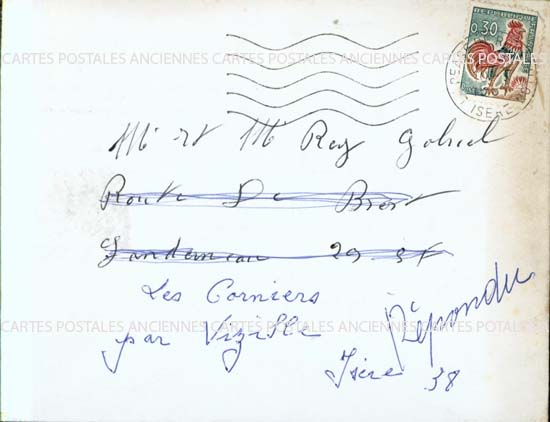 REPUBLIQUE
0,30
ISERE
CARTES POSTALES ANCIENNES CARTES POSTALES ANCIENNES CARTES POSTALES ANCIENNES
Mr et Me Rey Gabriel
Route De Brest
Landerneau 29
Les Corniers
CARTES POSTALES ANCIENNES CARTES POSTALES ANCIENNES CARTES POSTALES ANCIENNES
par Vizille
Répondu
Isère 38